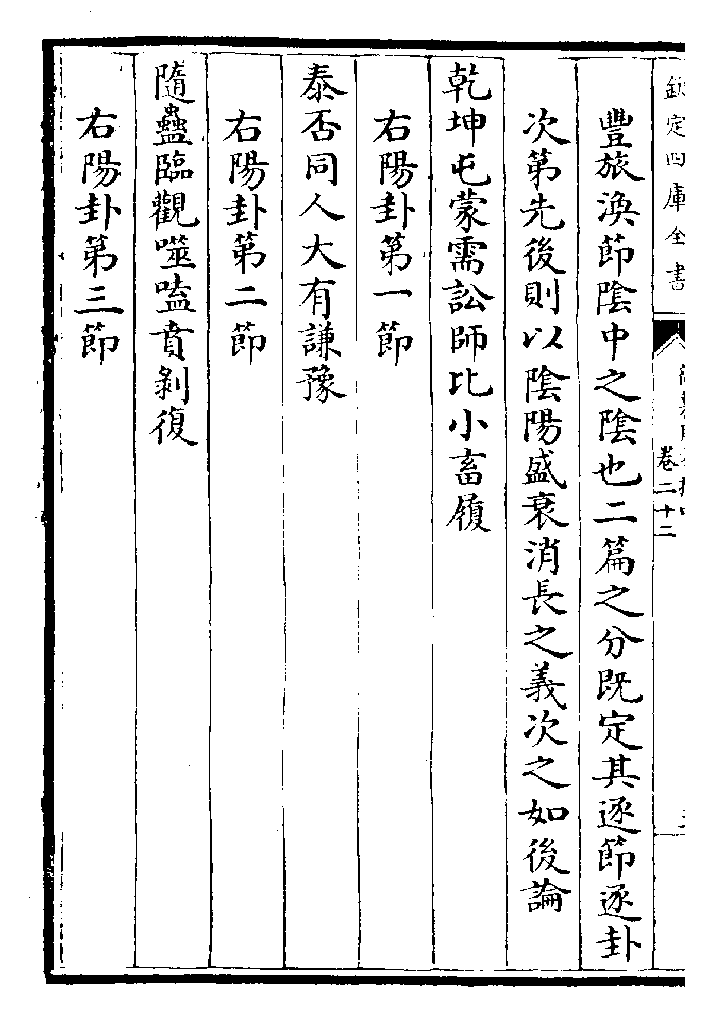 欽定四庫全書
卷二十二
豐旅渙節陰中之陰也二篇之分既定其逐節逐卦
次第先後則以陰陽盛衰消長之義次之如後論
乾坤屯蒙需訟師比小畜履
右陽卦第一節
泰否同人大有謙豫
右陽卦第二節
隨蠱臨觀噬嗑賁剝復
右陽卦第三節